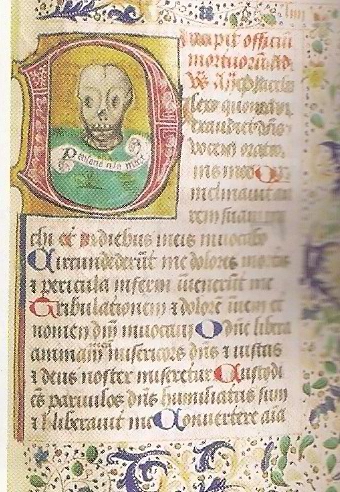 Incipit officiu
mortuorum ad
vs An Placebo
lexi quoniam
exaudiet dns
vocem oratio
nis mee Qui
inclinauit au
rem suam mi
chi et in diebus meis inuocabo
Circundederut me dolores mortis
et pericula inferni inuenerut me
Tribulationem et dolore inueni et
nomen dni inuocaui O dne libera
animam mea misericors dns et iustus
et deus noster miseretur Custodi
es paruulos dns humiliatus sum
et liberauit me Conuertere aia